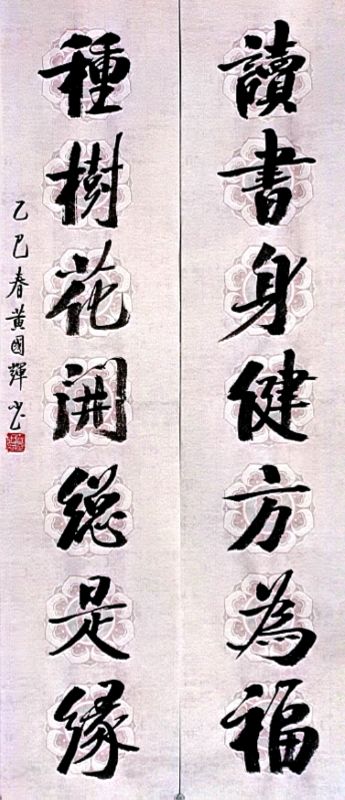 讀書身健方為福
種樹花開總是緣
乙巳春黃國輝书